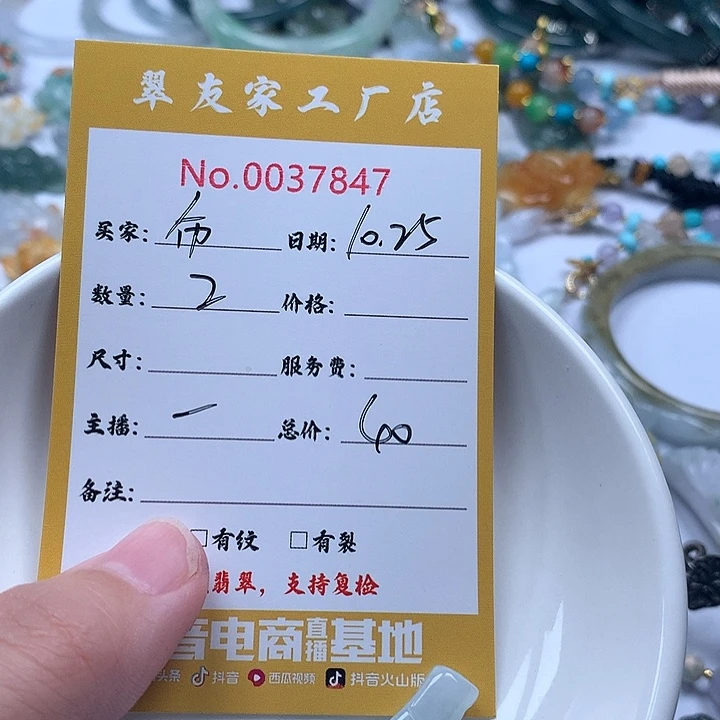 翠友家工厂店
No.0037847
买家: 日期: 10.25
数量: 2 价格:
尺寸: 服务费:
主播: 一 总价:
备注:
□有纹 □有裂
翡翠，支持复检
音电商直播基地
头条 抖音 西瓜视频 抖音火山版